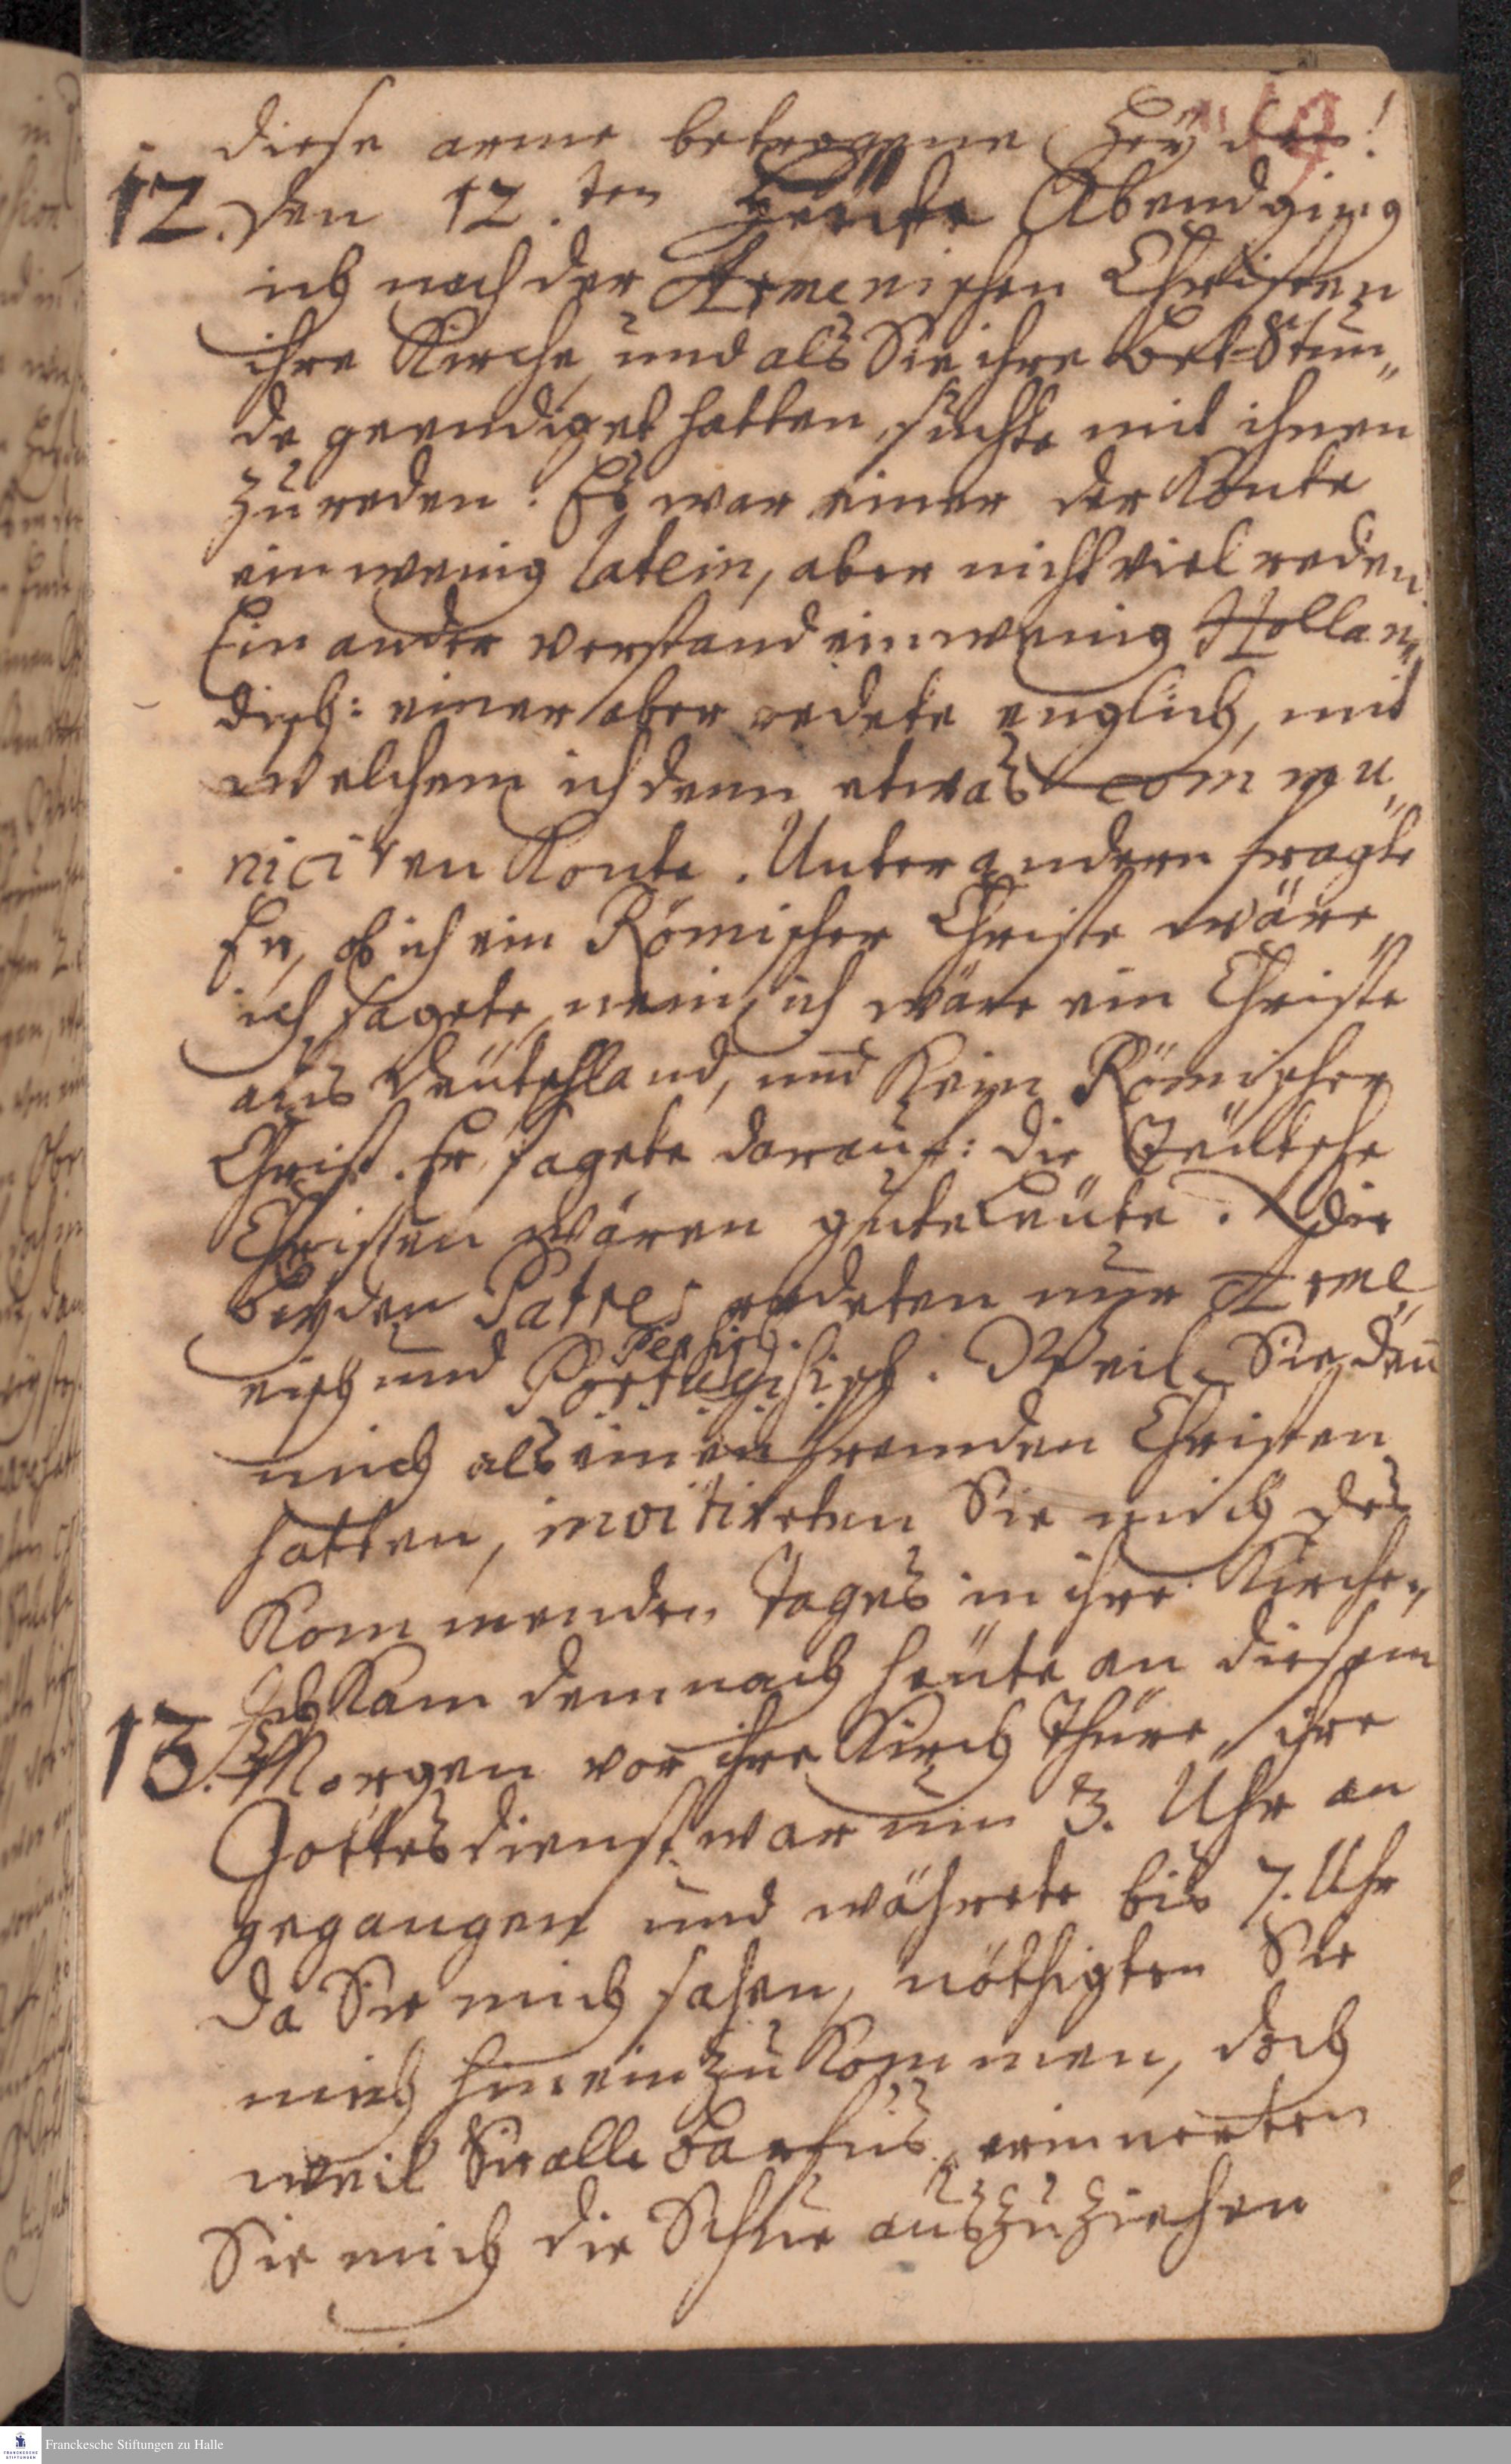 diese arme betrogene Heyden!
19
12. Den 12.ten Heüte Abend ging
ich nach der Armenischen Christen
ihre Kirche, und als Sie ihre Bet-Stun„
de geendiget hatten, suchte mit ihnen
zu reden. Es war einer der Konte
ein wenig latein, aber nicht viel reden
Ein ander verstand ein wenig Hollan„
disch: einer aber redete englich, mit
welchem ich denn etwas commu„
niciren Konte. Unter andern fragte
Er, ob ich ein Römischer Christe wäre,
ich sagete, nein, ich wäre ein Christe
aus Deütschland, und Kein Römischer
Christ. Er sagete darauf: die Teütsche
Christen wären gute Leüte. Die
beyden Patres redeten nur Arme„
nisch und Portugisisch. Weil Sie den
Persisch.
mich als einen fremden Christen
hatten, invitireten Sie mich des
Kommenden Tages in ihre Kirche.
Ich Kam demnach heüte an diesem
13. Morgen vor ihre Kirch Thüre, ihre
Gottesdienst war um 3. Uhr an
gegangen und währete bis 7. Uhr
Da Sie mich sahen, nöthigten Sie
mich hinein zu Kommen, doch
weil Sie alle Barfus, erinnerten
Sie mich die Schue auszuziehen
Franckesche Stiftungen zu Halle